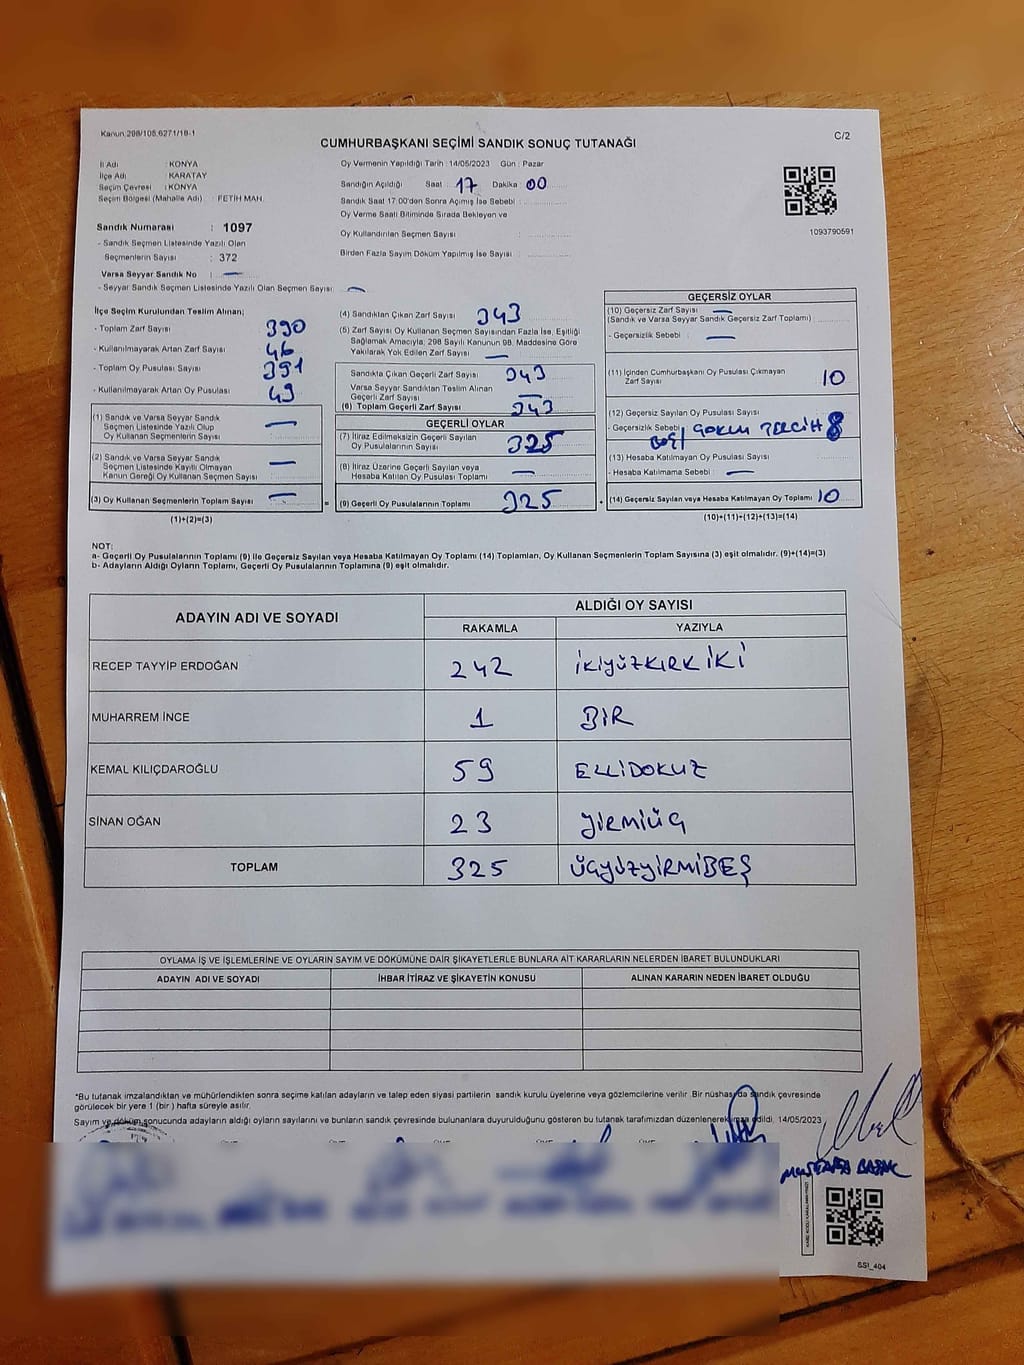 Kanun,298/105,6271/18-1
C/2
CUMHURBAŞKANI SEÇİMİ SANDIK SONUÇ TUTANAĞI
İl Adı : KONYA
İlçe Adı : KARATAY
Seçim Çevresi : KONYA
Seçim Bölgesi (Mahalle Adı) : FETİH MAH.
Sandık Numarası : 1097
- Sandık Seçmen Listesinde Yazılı Olan
Seçmenlerin Sayısı : 372
Varsa Seyyar Sandık No : —
- Seyyar Sandık Seçmen Listesinde Yazılı Olan Seçmen Sayısı: —
Oy Vermenin Yapıldığı Tarih : 14/05/2023 Gün : Pazar
Sandığın Açıldığı Saat : 17 Dakika : 00
Sandık Saat 17.00'den Sonra Açımış İse Sebebi :
Oy Verme Saati Bitiminde Sırada Bekleyen ve
Oy Kullandırılan Seçmen Sayısı :
Birden Fazla Sayım Döküm Yapılmış İse Sayısı :
1093790591
İlçe Seçim Kurulundan Teslim Alınan;
- Toplam Zarf Sayısı 390
- Kullanılmayarak Artan Zarf Sayısı 46
- Toplam Oy Pusulası Sayısı 391
- Kullanılmayarak Artan Oy Pusulası 49
(1) Sandık ve Varsa Seyyar Sandık
Seçmen Listesinde Yazılı Olup
Oy Kullanan Seçmenlerin Sayısı —
(2) Sandık ve Varsa Seyyar Sandık
Seçmen Listesinde Kayıtlı Olmayan
Kanun Gereği Oy Kullanan Seçmen Sayısı —
(3) Oy Kullanan Seçmenlerin Toplam Sayısı —
(1)+(2)=(3)
(4) Sandıktan Çıkan Zarf Sayısı 343
(5) Zarf Sayısı Oy Kullanan Seçmen Sayısından Fazla İse, Eşitliği
Sağlamak Amacıyla; 298 Sayılı Kanunun 98. Maddesine Göre
Yakılarak Yok Edilen Zarf Sayısı —
Sandıkta Çıkan Geçerli Zarf Sayısı 343
Varsa Seyyar Sandıktan Teslim Alınan
Geçerli Zarf Sayısı —
(6) Toplam Geçerli Zarf Sayısı 343
GEÇERLİ OYLAR
(7) İtiraz Edilmeksizin Geçerli Sayılan
Oy Pusulalarının Sayısı 325
(8) İtiraz Üzerine Geçerli Sayılan veya
Hesaba Katılan Oy Pusulası Toplamı —
(9) Geçerli Oy Pusulalarının Toplamı 325
GEÇERSİZ OYLAR
(10) Geçersiz Zarf Sayısı —
(Sandık ve Varsa Seyyar Sandık Geçersiz Zarf Toplamı)
- Geçersizlik Sebebi : —
(11) İçinden Cumhurbaşkanı Oy Pusulası Çıkmayan
Zarf Sayısı 10
(12) Geçersiz Sayılan Oy Pusulası Sayısı 8
- Geçersizlik Sebebi TERCİH
(13) Hesaba Katılmayan Oy Pusulası Sayısı
- Hesaba Katılmama Sebebi : —
(14) Geçersiz Sayılan veya Hesaba Katılmayan Oy Toplamı 10
(10)+(11)+(12)+(13)=(14)
NOT:
a- Geçerli Oy Pusulalarının Toplamı (9) ile Geçersiz Sayılan veya Hesaba Katılmayan Oy Toplamı (14) Toplamları, Oy Kullanan Seçmenlerin Toplam Sayısına (3) eşit olmalıdır. (9)+(14)=(3)
b- Adayların Aldığı Oyların Toplamı, Geçerli Oy Pusulalarının Toplamına (9) eşit olmalıdır.
ADAYIN ADI VE SOYADI ALDIĞI OY SAYISI
RAKAMLA YAZIYLA
RECEP TAYYİP ERDOĞAN 242 İKİYÜZKIRKİKİ
MUHARREM İNCE 1 BİR
KEMAL KILIÇDAROĞLU 59 ELLİDOKUZ
SİNAN OĞAN 23 YİRMİÜÇ
TOPLAM 325 ÜÇYÜZYİRMİBEŞ
OYLAMA İŞ VE İŞLEMLERİNE VE OYLARIN SAYIM VE DÖKÜMÜNE DAİR ŞİKAYETLERLE BUNLARA AİT KARARLARIN NELERDEN İBARET BULUNDUKLARI
ADAYIN ADI VE SOYADI İHBAR İTİRAZ VE ŞİKAYETİN KONUSU ALINAN KARARIN NEDEN İBARET OLDUĞU
*Bu tutanak imzalandıktan ve mühürlendikten sonra seçime katılan adayların ve talep eden siyasi partilerin sandık kurulu üyelerine veya gözlemcilerine verilir. Bir nüshası da sandık çevresinde
görülecek bir yere 1 (bir) hafta süreyle asılır.
Sayım ve döküm sonucunda adayların aldığı oyların sayılarını ve bunların sandık çevresinde bulunanlara duyurulduğunu gösteren bu tutanak tarafımızdan düzenlenerek imza edildi. 14/05/2023
MUSTAFA
SSI_404